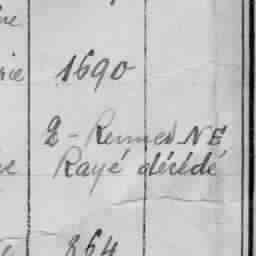 1690
2 - Rennes NE
Rayé décédé
864